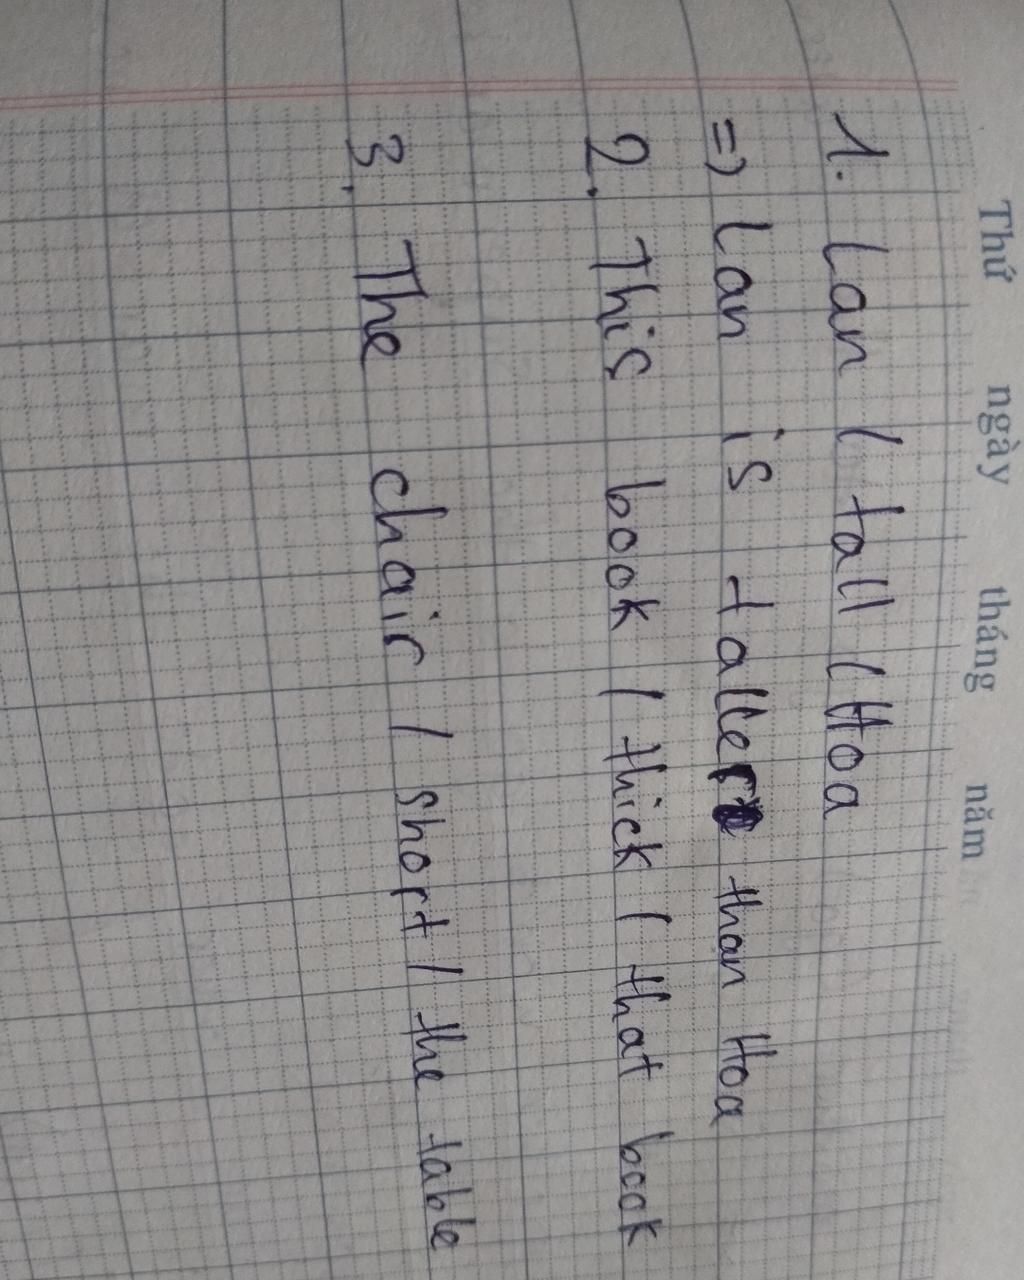 Thứ ngày tháng năm
1. Lan / tall / Hoa
=> Lan is taller than Hoa
2. This book / thick / that book
3. The chair / short / the table